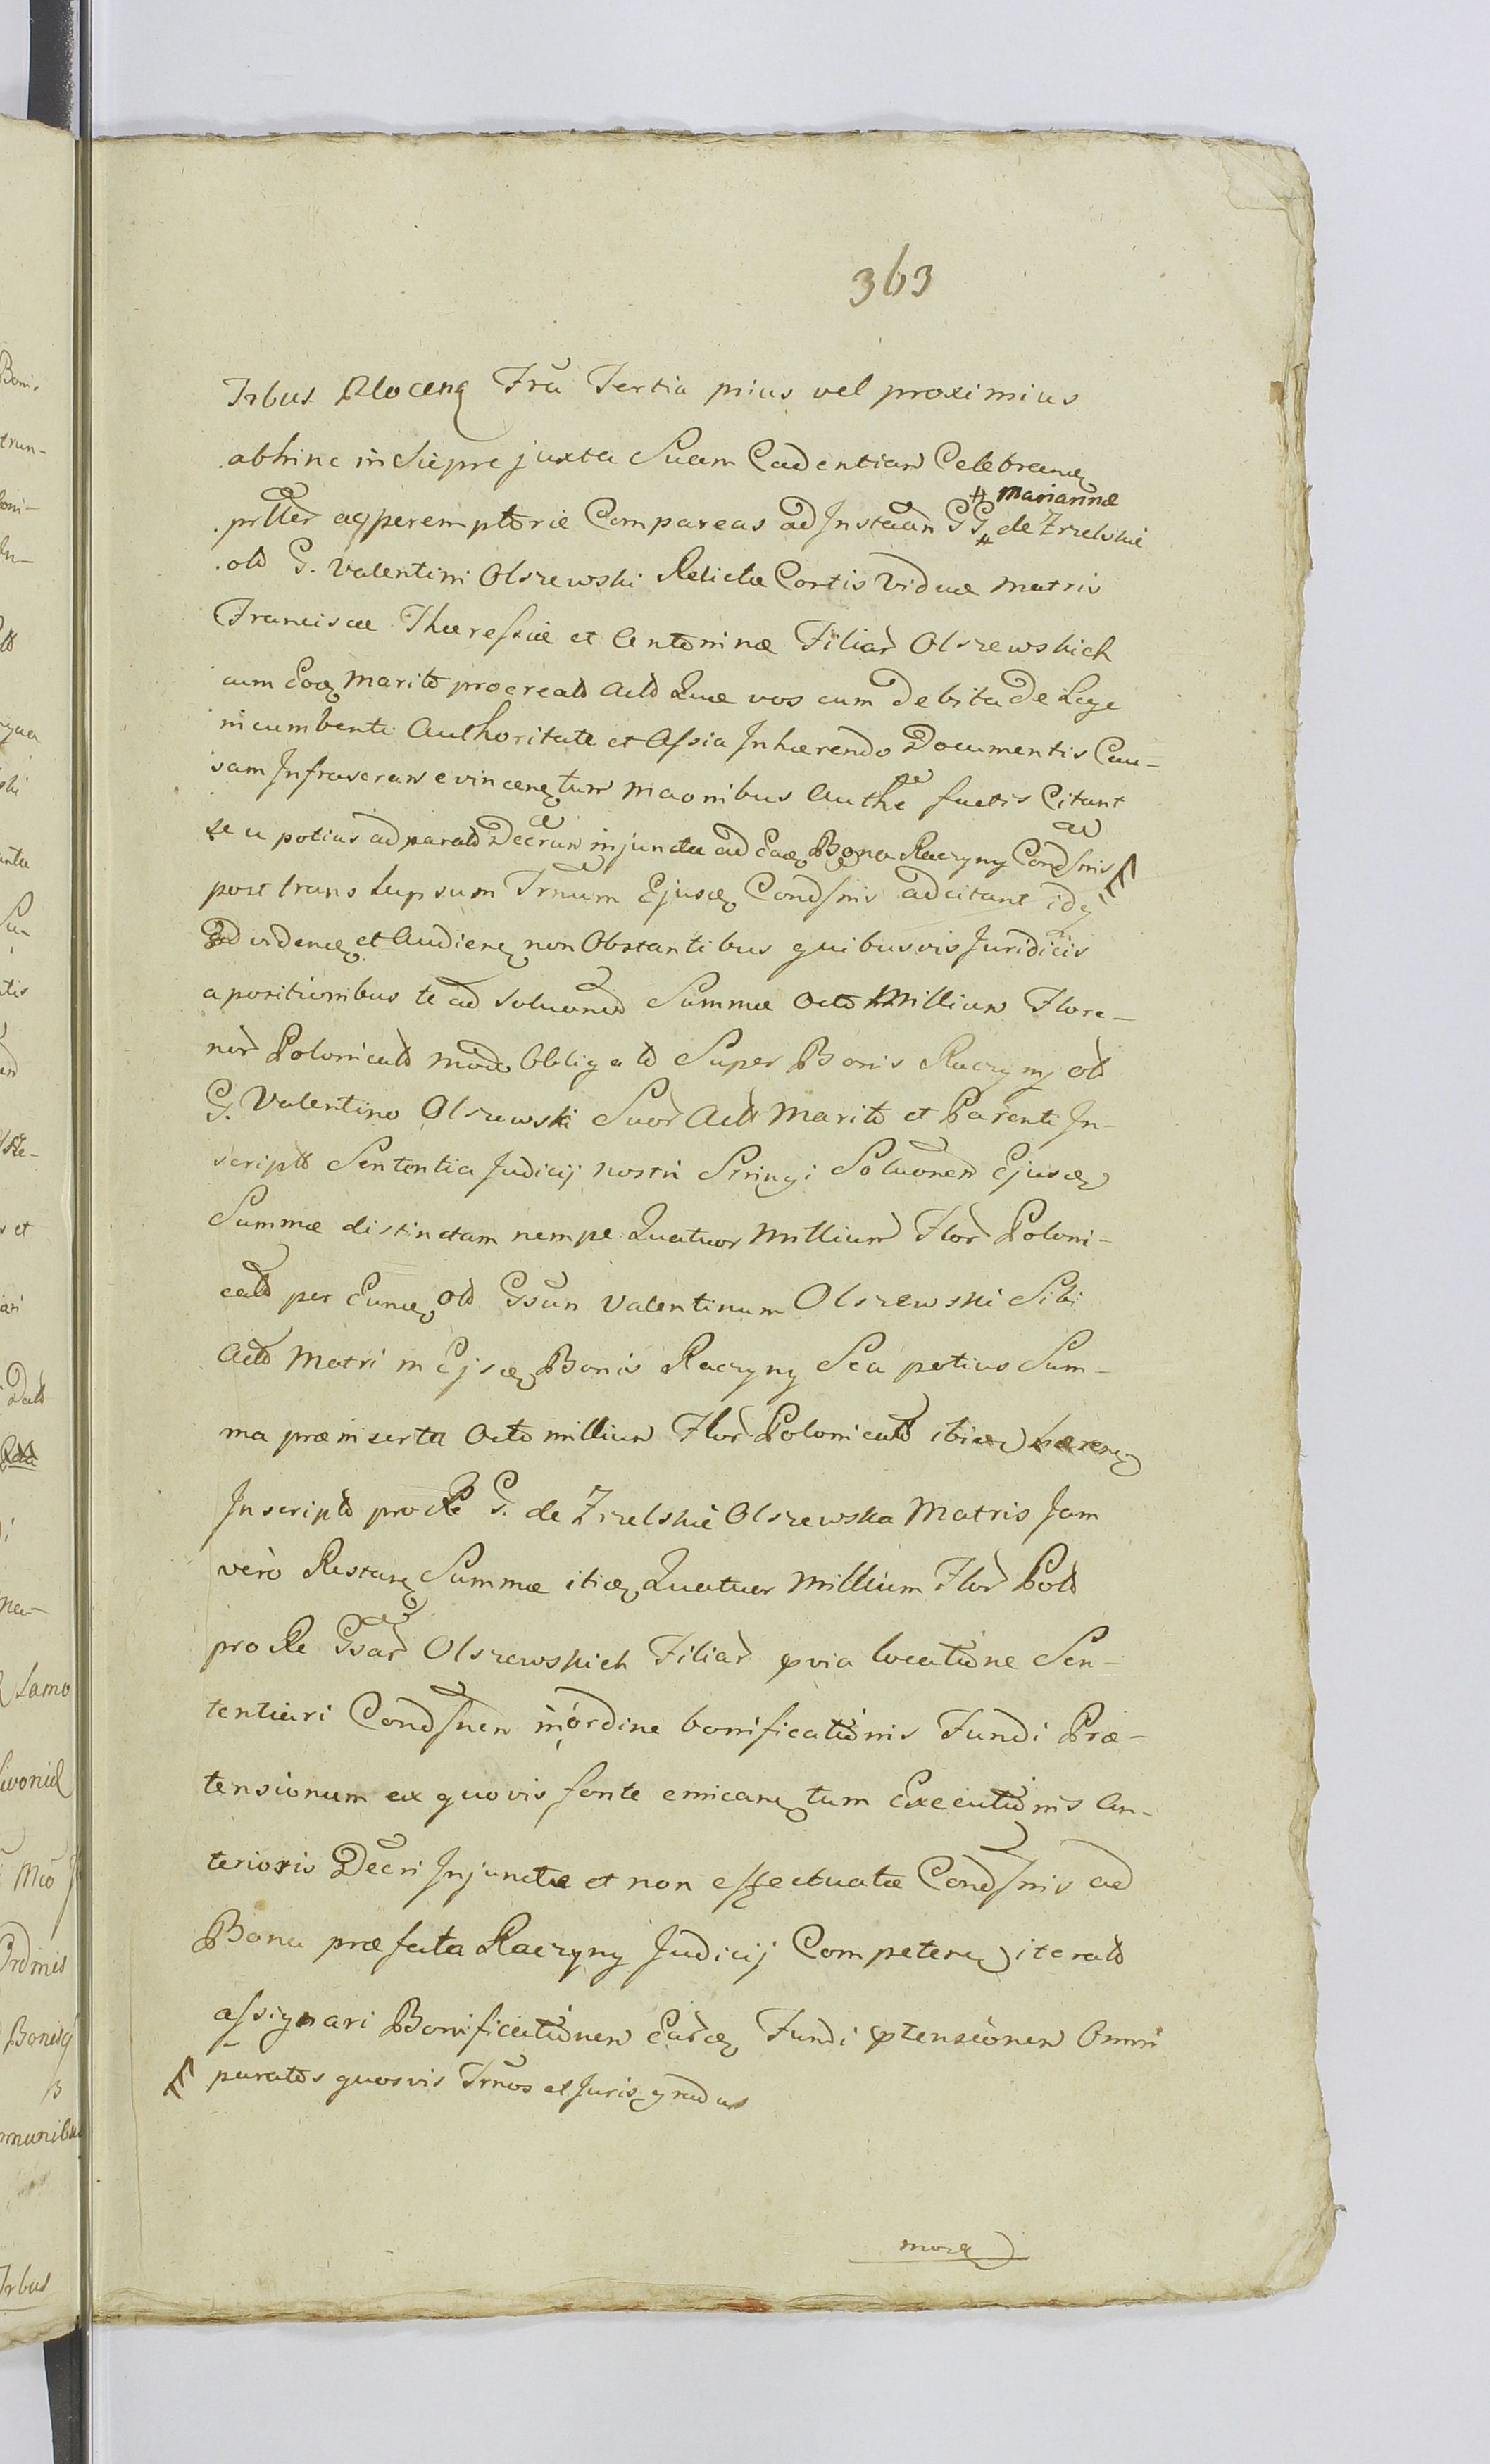 363
Trbus Plocenq Frã Tertia prius vel proximius
abhinc in Sierpre juxta Suam Cadentiam Celebranq
prtter aqperemptorie Compareas ad Instaan GG # Mariannæ de Zrzelskie
olo G. Valentini Olszewski Relictæ Contis Viduæ Matris
Franciscæ Theressiæ et Antoninæ Filiar Olszewskich
cum Eoq Marito procreato Acto Quæ vos cum Debita De Lege
incumbenti Authoritate et Assia Inhærendo Documentis Cau-
sam Infrascran evincenq tum Maonibus Authe factis Citant
seu potius ad parato Decrum injuncta ad Eaq Bona Raczyny Condsnis
post translapsum Trnum Ejusq Condsnis adcitant idq
Ad videnq et Audienq non Obstantibus quibusvis Juridicis
apositionibus te ad Soluonem Summæ Octo Millium Flore-
nor Polonicalo modo Obligato Super Bonis Raczyny olo
G. Valentino Olszewski Suor Acto Marito et Parenti In-
scripto Sententia Judicij nostri Stringi Soluonem Ejusq
Summæ distinctam nempe Quatuor Millium Flor Poloni-
calo per Eunq olo Gsun Valentinum Olszewski Sibi
Acto Matri in Ejsq Bonis Raczyny Seu potius Sum-
ma præinserta Octo millium Flor Polonicalo ibiq hærenq
Inscripto pro Re G. de Zrzelskie Olszewska Matris Jam
vero Restanq Summæ itiq Quatuor Millium Flor Polo
pro Re Gsar Olszewskich Filiar qvia locatione Sen-
tentiari Condsnen in ordine bonificationis Fundi Præ-
tensionum ex quovis fonte emicanq tum Executionis An-
terioris Decri Injunctæ et non effectuatæ Condsnis ad
Bona præfata Raczyny Judicij Competenq iterato
assignari Bonificationem Earq Fundi ptensionem Omni
paratos quosvis Trnos et Juris gradus
mora